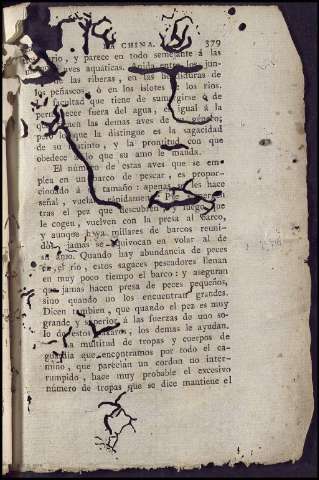 CHINA. 379
rio, y parece en todo semejante á las
aves aquáticas. Anida entre los jun-
de las riberas, en las
los peñascos, ó en los islotes los rios.
facultad que tiene de sumergirse ó de
permanecer fuera del agua, es igual á la
tienen las demas aves de género;
pero lo que la distingue es la sagacidad
de su instinto, y la prontitud con que
obedece lo que su amo le manda.
El número de estas aves que se em-
plea en un barco de pescar, es propor-
cionado á tamaño: apenas les hace
señal, vuelan
tras el pez que descubren luego que
le cogen, vuelven con la presa al barco,
y aunque haya millares de barcos reuni-
jamas se equivocan en volar al de
su amo. Quando hay abundancia de peces
en el rio, estos sagaces pescadores llenan
en muy poco tiempo el barco: y aseguran
que jamas hacen presa de peces pequeños,
sino quando no los encuentran grandes.
Dicen tambien, que quando el pez es muy
grande y superior á las fuerzas de uno so-
lo de estos los demas le ayudan.
La multitud de tropas y cuerpos de
guardia que encontramos por todo el ca-
mino, que parecian un cordon no inter-
rumpido, hace muy probable el excesivo
número de tropas que se dice mantiene el